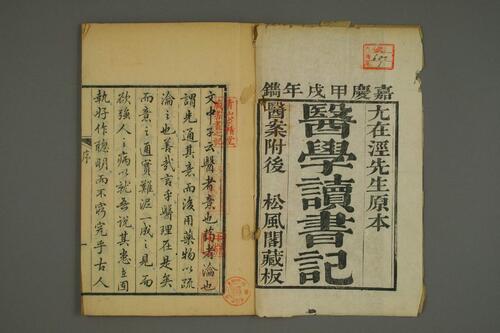 嘉慶甲戌年鐫
尤在涇先生原本
醫學讀書記
醫案附後 松風閣藏板
文中子云醫者意也藥者瀹也
謂先通其意而後用藥物以疏
瀹之也善哉言乎醫理在是矣
而意之通實難泥一成之見而
欲強人之病以就吾說其患在固
執好作聰明而不窮究乎古人
序